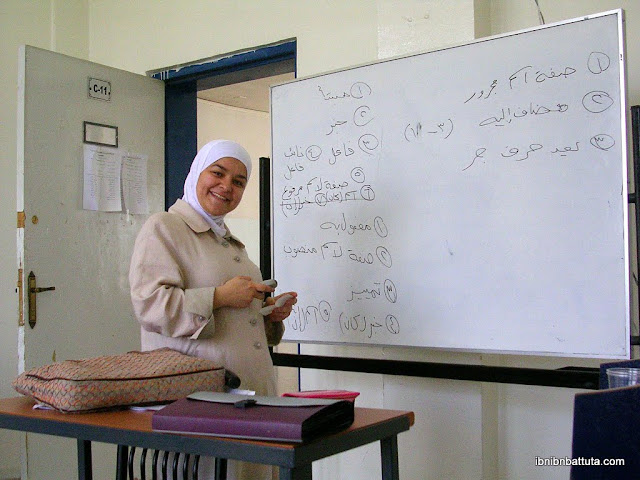 C-11
① صفة اسم مجرور
② مضاف إليه (٣-١١)
③ بعد حرف جر
① مبتدأ
② خبر
③ فاعل ④ نائب فاعل
⑤ صفة لاسم مرفوع
① مفعول به
② صفة لاسم منصوب
③ تمييز
④ خبر (كان) ⑤ اسم (إنّ)
ibnibnbattuta.com